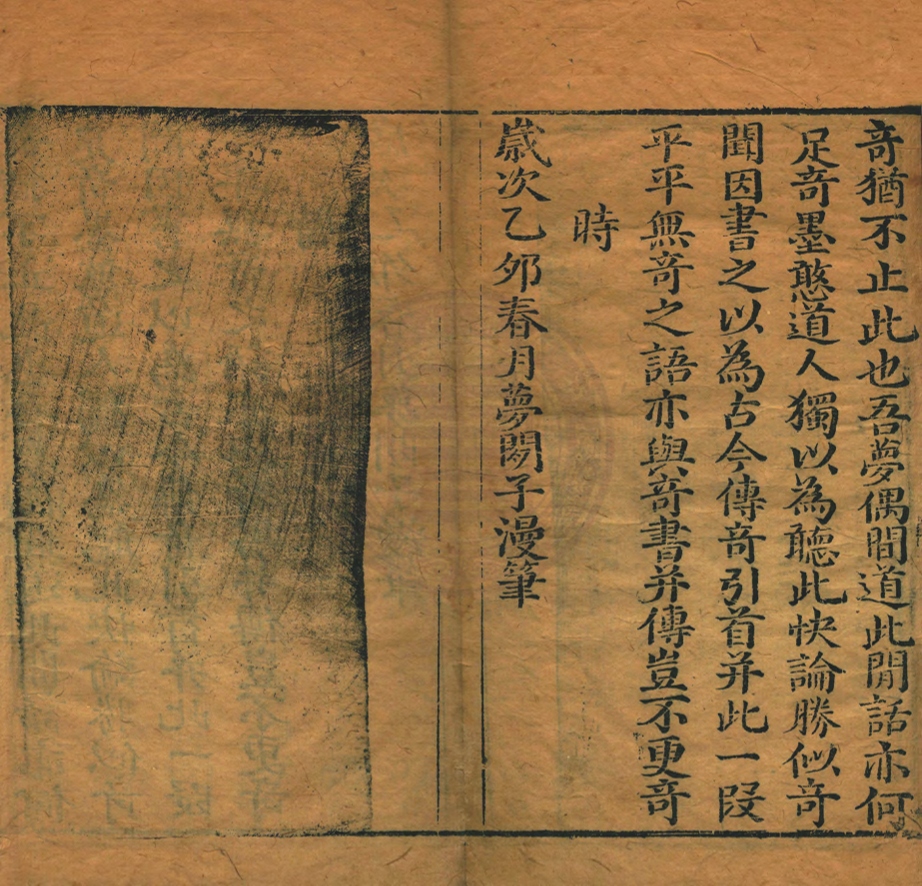 奇猶不止此也吾夢偶閒道此閒話亦何
足奇墨憨道人獨以為聽此快論勝似奇
聞因書之以為古今傳奇引首并此一段
平平無奇之語亦與奇書并傳豈不更奇
時
嵗次乙夘春月夢閒子漫筆